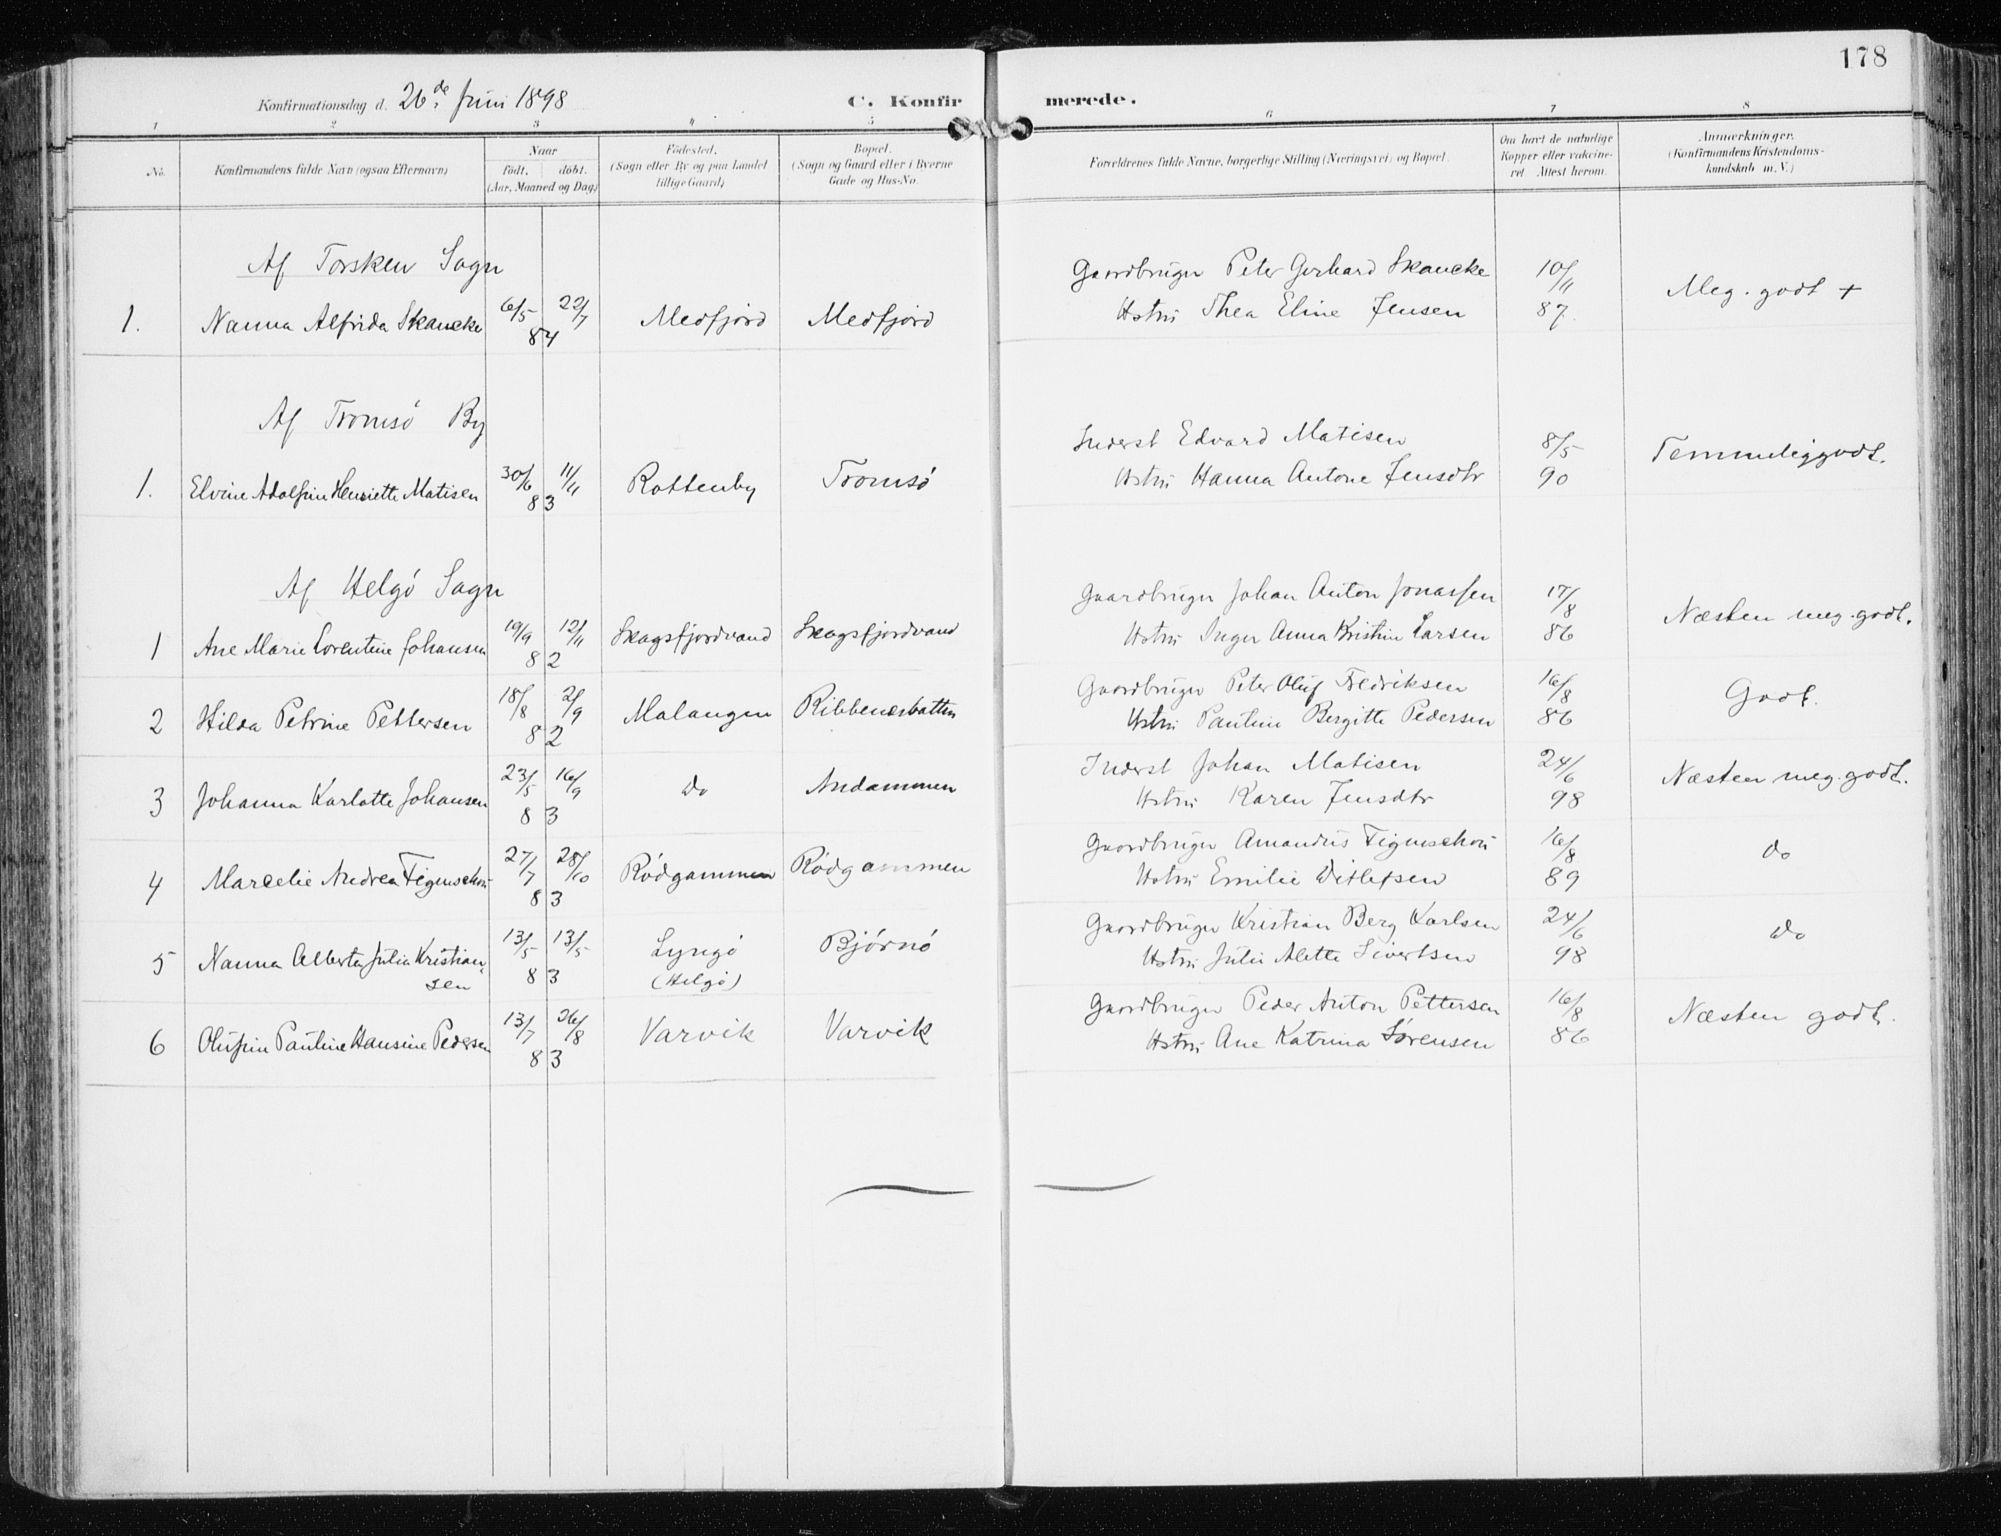 178
Konfirmationsdag d. 26de Juni 1898
C. Konfirmerede.
1 2 3 4 5 6 7 8
No. Konfirmandens fulde Navn (ogsaa Efternavn) Naar født, døbt. (Aar, Maaned og Dag) Fødested. (Sogn eller By og paa Landet tillige Gaard) Bopæl. (Sogn og Gaard eller i Byerne Gade og Hus-No. Forældrenes fulde Navne, borgerlige Stilling (Næringsvei) og Bopæl. Om havt de naturlige Kopper eller vakcineret Attest herom. Anmærkninger. (Konfirmandens Kristendomskundskab m.V.)
Af Torsken Sogn
Gaardbruger Peter Gerhard Skancke 10/11
1. Nanna Alfrida Skancke 6/5 22/7 84 Medfjord Medfjord Hstru Thea Eline Jensen 87. Meg. godt +
Af Tromsö By
Inderst Edvard Matisen 8/5
1. Elvine Adolfine Henriette Matisen 30/6 11/11 83 Rottenby Tromsö Hstru Hanna Antone Jensdtr 90 Temmeliggodt.
Af Helgö Sogn
Gaardbruger Johan Anton Jonassen 17/8
1 Ane Marie Lorentine Johansen 19/9 12/11 82 Skogsfjordvand Skogsfjordvand Hstru Inger Anna Kristine Larsen 86 Næsten meg. godt.
Gaardbruger Peter Oluf Fredriksen 16/8
2 Hilda Petrine Pettersen 18/8 2/9 82 Malangen Hstru Pauline Bergitte Pedersen 86 Godt.
Inderst Johan Matisen 24/6
3 Johanna Karlotte Johansen 23/5 16/9 83 do Andammen Hstru Karen Jensdtr 98 Næsten meg. godt.
Gaardbruger Amandus Figenschou 16/8
4 Marcelie Andrea Figenschou 27/7 28/10 83 Rödgammen Rödgammen Hstru Emilie Ditlefsen 89 do
Gaardbruger Kristian Berg Karlsen 24/6
5 Nanna Alberta Julia Kristiansen 13/5 13/5 83 Lyngö (Helgö) Björnö Hstru Julie Alette Sivertsen 98 do
Gaardbruger Peder Anton Pettersen 16/8
6 Olufine Pauline Hansine Pedersen 13/7 26/8 83 Varvik Varvik Hstru Ane Katrina Sörensen 86 Næsten godt.